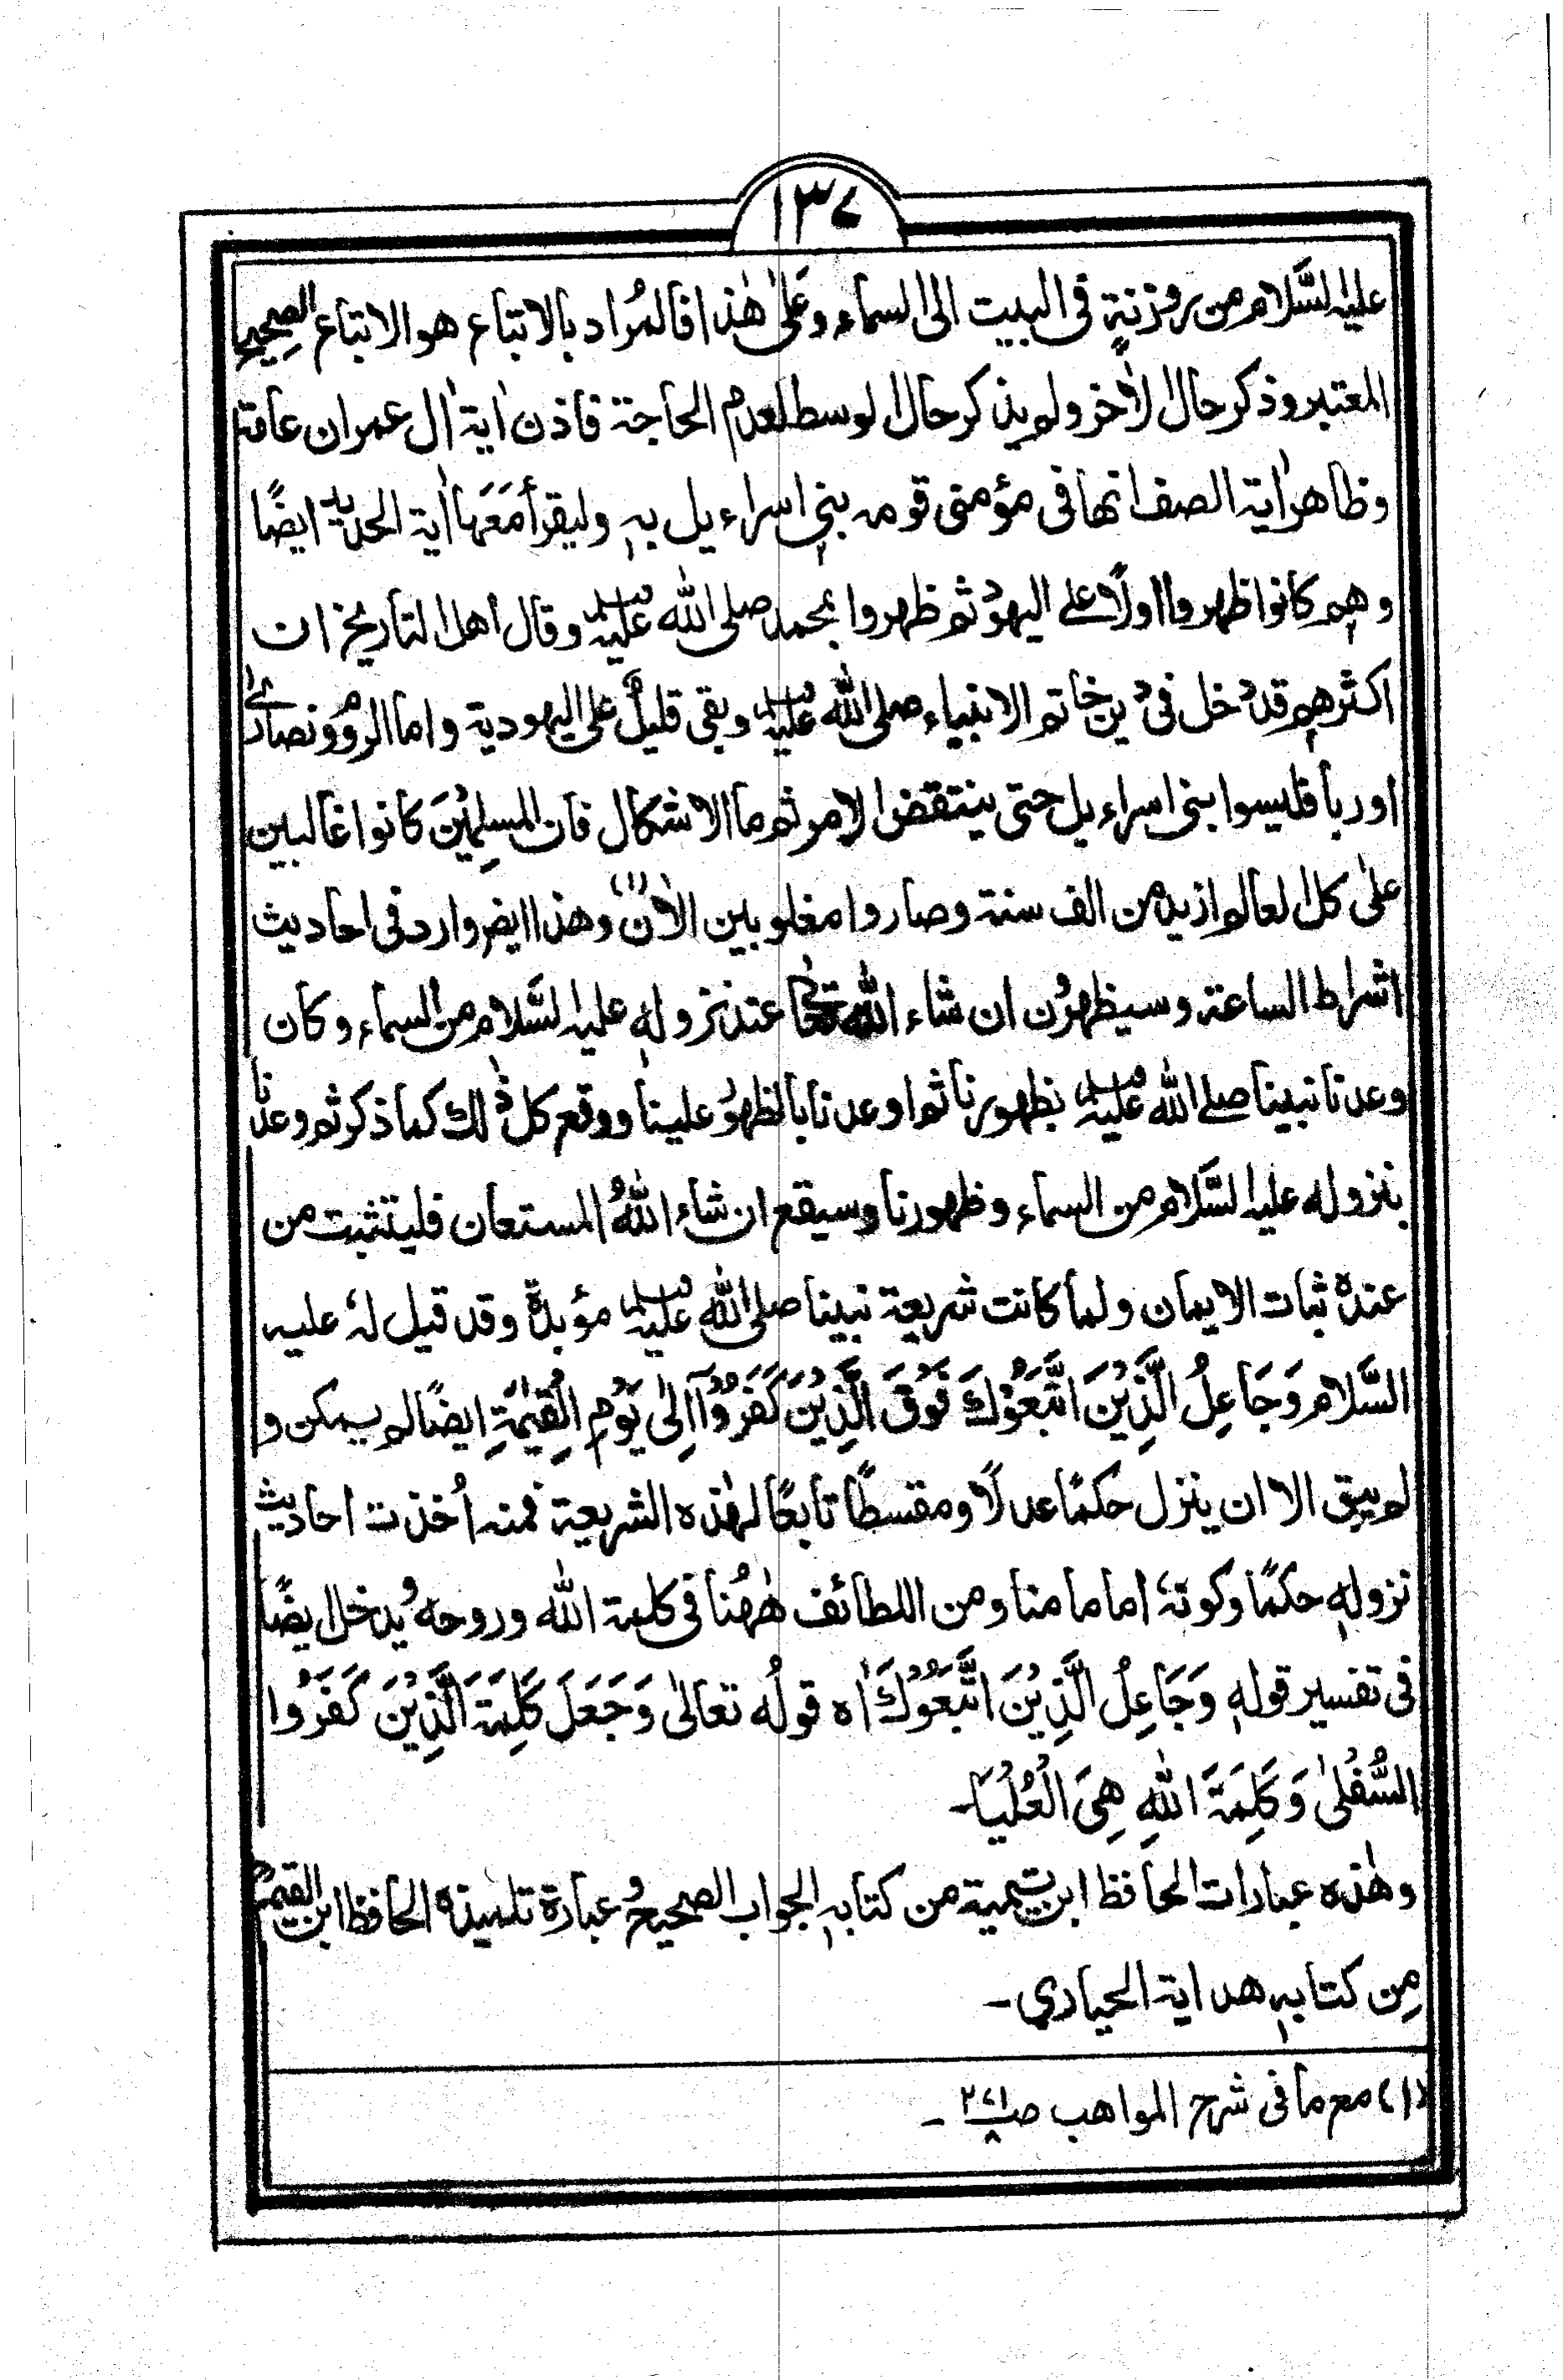 ١٣٧
عليه السَّلام من روزنةٍ فى البيت الى السماء وعَلىٰ هٰذا فالمُراد بالاتباع هو الاتباع الصحيح
المعتبر وذكر حال الاٰخر ولم يذكر حال الوسط لعدم الحاجة فاذن اٰية اٰل عمران عامة
وظاهر اٰية الصف انها فى مؤمنى قومه بنى اسراءيل به وليقرأ مَعَها اٰية الحديد ايضًا
وهم كانوا ظهروا اولًا على اليهود ثم ظهروا بمحمد صلى الله عليه وسلم وقال اهل التاريخ ان
اكثرهم قد دخل فى دين خاتم الانبياء صلى الله عليه وسلم وبقى قليلٌ على اليهودية واما الروم ونصارىٰ
اوربا فليسوا بنى اسراءيل حتى ينتقض الامر ثم ما الاشكال فان المسلِمِيْنَ كانوا غالبين
علىٰ كل العالم ازيد من الف سنة وصاروا مغلوبين الاٰن (١) وهذا ايضا وارد فى احاديث
اشراط الساعة وسيظهرون ان شاء الله تعالىٰ عند نزوله عليه السَّلام من السماء وكان
وعدنا نبينا صلے الله عليه وسلم بظهورنا ثم اوعدنا بالظهور علينا ووقع كل ذٰلك كما ذكر ثم وعدنا
بنزوله عليه السَّلام من السماء وظهورنا وسيقع ان شاء اللهُ المستعان فليتثبت من
عندهٗ ثبات الايمان ولما كانت شريعة نبينا صلى الله عليه وسلم مؤبدةً وقد قيل لهٗ عليه
السَّلام وَجَاعِلُ الَّذِيْنَ اتَّبَعُوْكَ فَوْقَ الَّذِيْنَ كَفَرُوْآ اِلٰى يَوْمِ الْقِيٰمَةِ ايضًا لم يمكن و
لم يبق الا ان ينزل حكمًا عدلًا ومقسطًا تابعًا لهٰذه الشريعة فمنه اُخذت احاديث
نزوله حكمًا وكونهٗ اماما منا ومن اللطائف هٰهُنا فى كلمة الله وروحه ويُدخل ايضًا
فى تفسير قوله وَجَاعِلُ الَّذِيْنَ اتَّبَعُوْكَ اٰه قولُه تعالىٰ وَجَعَلَ كَلِمَةَ الَّذِيْنَ كَفَرُوا
السُّفْلىٰ وَكَلِمَةَ اللهِ هِىَ الْعُلْيَا۔
وهٰذه عبارات الحافظ ابن تيمية من كتابه الجواب الصحيح وعبارة تلميذه الحافظ ابن القيمؒ
مِن كتابه هداية الحيارىٰ۔
(١) مع ما فى شرح المواهب صـ ٢٧١ ـ